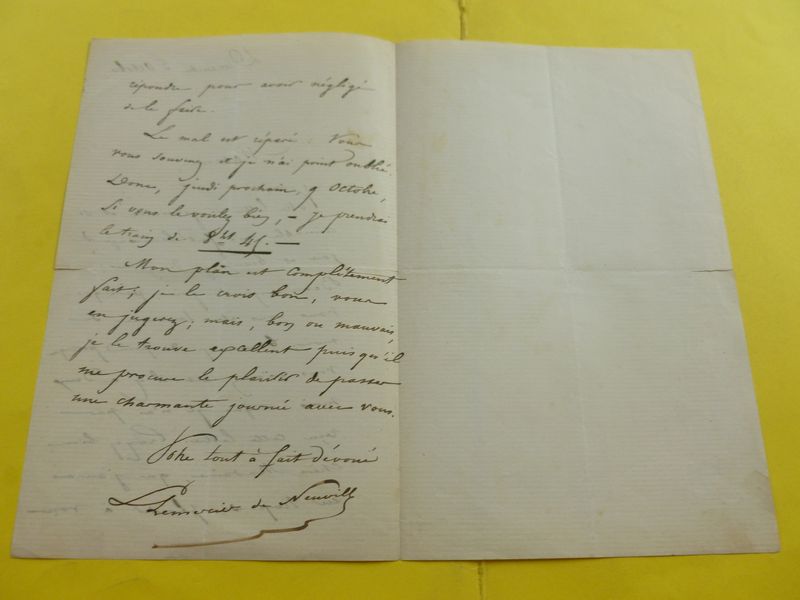 répondre pour avoir négligé
de le faire.
Le mal est réparé. Vous
vous souvenez et je n'ai point oublié.
Donc, jeudi prochain, 9 Octobre,
Si vous le voulez bien, - je prendrai
le train de 8h 45. -
Mon plan est complètement
fait; je le crois bon, vous
en jugerez; mais, bon ou mauvais,
je le trouve excellent puisqu'il
me procure le plaisir de passer
une charmante journée avec vous.
Votre tout à fait dévoué
Lemercier de Neuville